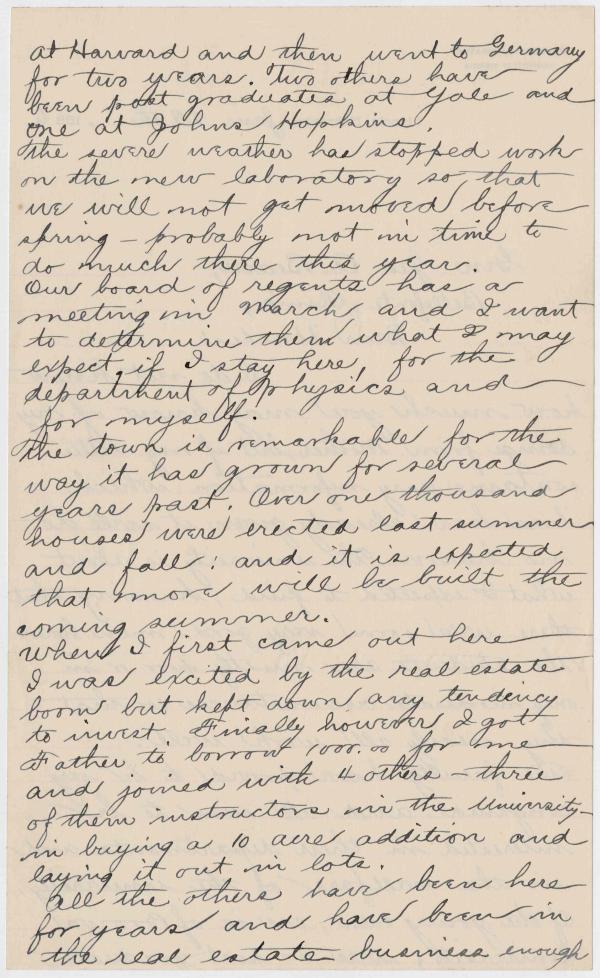 at Harvard and then went to Germany
for two years. Two others have
been post graduates at Yale and
one at Johns Hopkins.
The severe weather has stopped work
on the new laboratory so that
we will not get moved before
spring - probably not in time to
do much there this year.
Our board of regents has a
meeting in March and I want
to determine then what I may
expect, if I stay here, for the
department of physics and
for myself.
The town is remarkable for the
way it has grown for several
years past. Over one thousand
houses were erected last summer
and fall: and it is expected
that more will be built the
coming summer.
When I first came out here
I was excited by the real estate
boom but kept down any tendency
to invest. Finally however I got
Father to borrow 1000.00 for me
and joined with 4 others - three
of them instructors in the University -
in buying a 10 acre addition and
laying it out in lots.
All the others have been here
for years and have been in
the real estate business enough